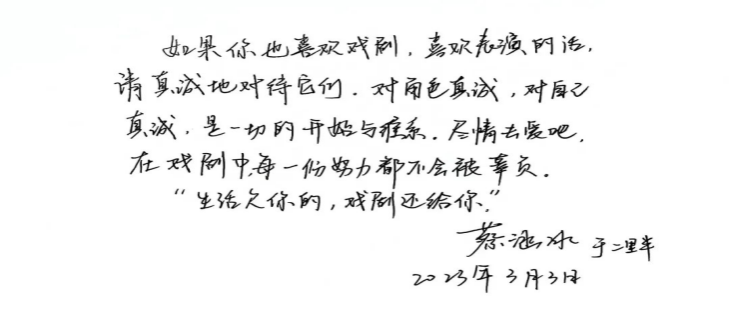 如果你也喜欢戏剧，喜欢表演的话，
请真诚地对待它们．对角色真诚，对自己
真诚，是一切的开始与维系．尽情去爱吧，
在戏剧中，每一份努力都不会被辜负．
“生活欠你的，戏剧还给你．”
蔡 冰 于二里半
2023年3月3日